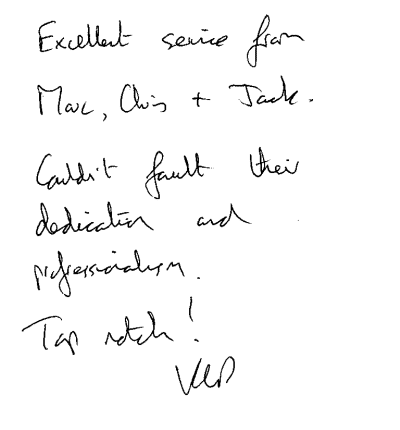 Excellent service from
Marc, Chris + Jack.
Couldn't fault their
dedication and
professionalism.
Top notch!